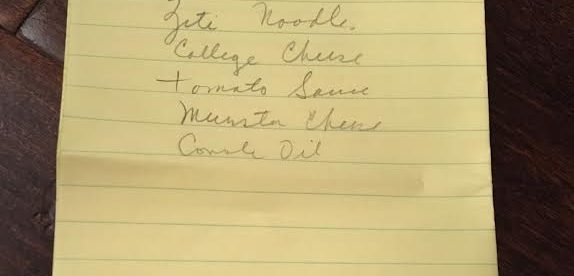 Zite Noodle.
College Cheese
tomato Sauce
Munster Cheese
Conole Oil